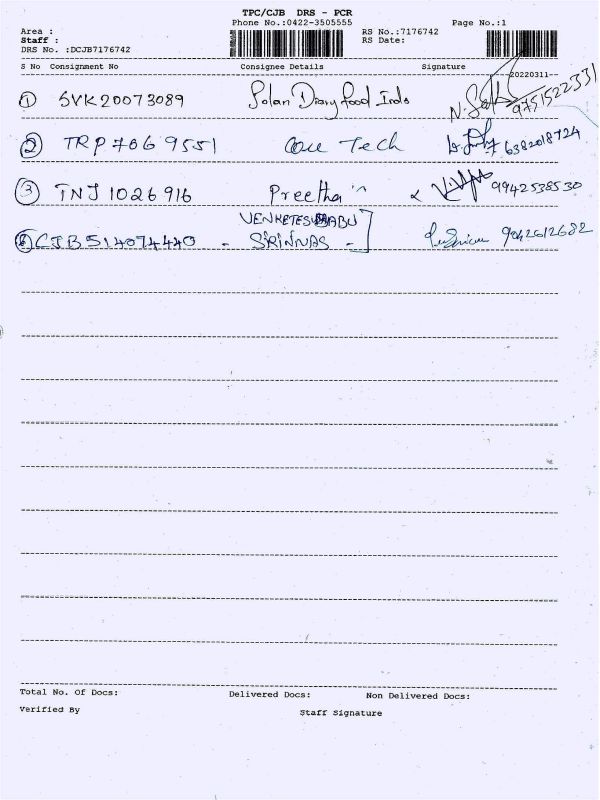 TPC/CJB DRS - PCR
Phone No.:0422-3505555
Page No.:1
Area :
RS No.:7176742
Staff :
RS Date:
DRS No. :DCJB7176742
S No Consignment No Consignee Details Signature
20220311--
1 SVK20073089 Solan Diary food Inds 9751522331
2 TRP7069551 Tech 6382018724
3 TNJ1026916 Preetha 9942538530
VENKETESHBABU
CJB514074440 - SRINIVAS - 9042612682
Total No. Of Docs: Delivered Docs: Non Delivered Docs:
Verified By Staff Signature